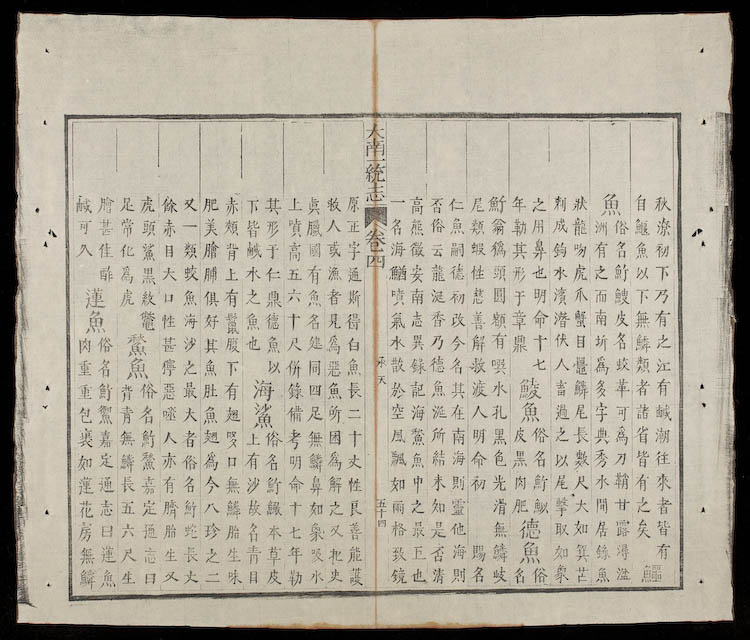 秋潦初下乃有之江有鹹潮往來者皆有
自鱷魚以下無鱗類者諸省皆有之矣 鱷
魚俗名𩵜𩺧皮名蛟革可為刀鞘甘露潯濫
洲有之而南圻為多字典秀水閒居錄魚
狀龍吻虎爪蟹目鼉鱗尾長數尺大如箕芒
刺成鉤水濱潛伏人畜過之以尾擊取如象
之用鼻也明命十七
年勒其形于章鼎 鯪魚俗名𩵜
皮黑肉肥 德魚俗名
𩵜翁為頭圓額有噀水孔黑色光滑無鱗歧
尾類蝦性慈善解救渡人明命初 賜名
仁魚嗣德初改今名其在南海則靈他海則
否俗云龍涎香乃德魚涎所結未知是否清
高熊徵安南志異錄記海鰲魚中之最巨也
一名海鰌噴氣水散於空風飄如雨格致鏡
大南一統志 卷四 承天 五十四
原正字通斯得白魚長二十丈性良善能護
救人或漁者見為惡魚所困為解之又把史
真臘國有魚名建同四足無鱗鼻如象吸水
上噴高五六十尺併錄備考明命十七年勒
其形于仁鼎德魚以
下皆鹹水之魚也 海鯊俗名𩵜鰄本草皮
上有沙故名青目
赤頰背上有鬣腹下有翅哆口無鱗胎生味
肥美膾脯俱好其魚肚魚翅為今八珍之二
又一類蛟魚海沙之最大者俗名𩵜蛇長丈
餘赤目大口性甚獰惡噬人亦有臍胎生又
虎頭鯊黑紋鼈
足常化為虎 鰲魚俗名𩵜鰲嘉定通志曰
背青無鱗長五六尺生
膾甚佳醡
鹹可久 蓮魚俗名𩵜嘉定通志曰蓮魚
肉重重包裹如蓮花房無鱗